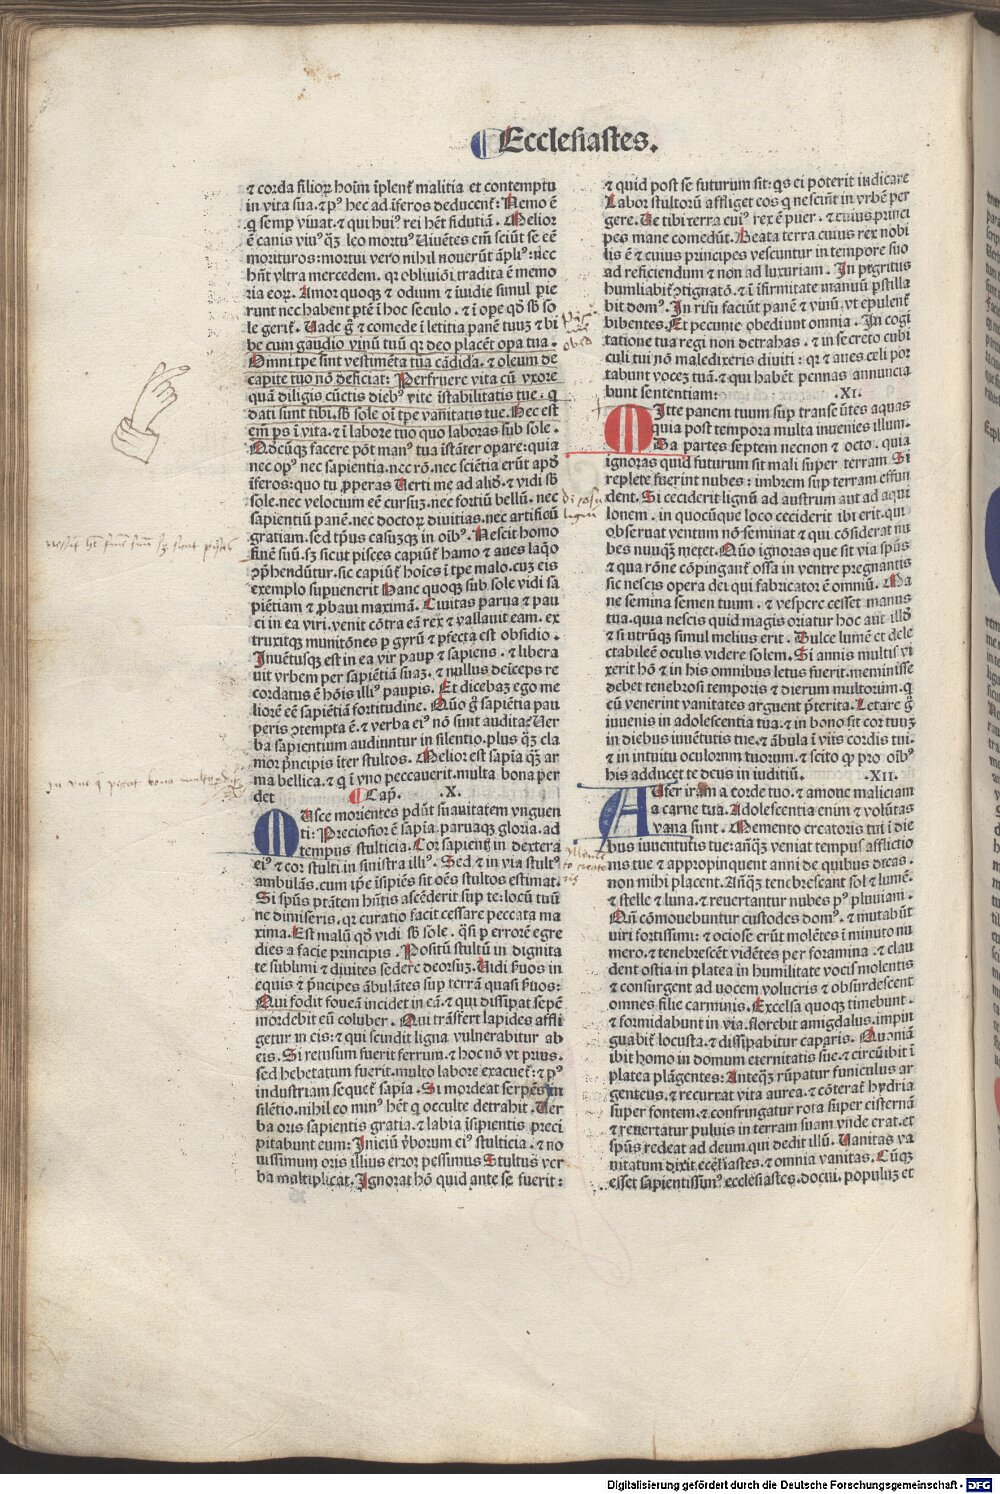 Ecclesiastes.
⁊ corda filioꝝ hoīm īplent᷑ malitia et contemptu
in vita sua. ⁊ pꝰ hec ad īferos deducent᷑: Nemo ē
q semꝑ viuat. ⁊ qui huiꝰ rei hēt fidutiā. Melior
ē canis viuꝰ qꝫ leo mortuꝰ Uiuētes em̄ sciūt se eē
morituros: mortui vero nihil nouerūt āpliꝰ: nec
hn̄t vltra mercedem. qꝛ obliuiōi tradita ē memo
ria eoꝝ. Amor quoqꝫ ⁊ odium ⁊ īuidie simul pie
runt nec habent ptē ī hoc seculo. ⁊ ī oꝑe qđ sƀ so
le gerit᷑. Uade g̃ ⁊ comede ī letitia panē tuuꝫ ⁊ bi
be cum gaudio vinū tuū qꝛ deo placēt oꝑa tua.
Omni tꝑe sint vestimēta tua cādida. ⁊ oleum de
capite tuo nō deficiat: Perfruere vita cū vxore
quā diligis cūctis diebꝰ vite īstabilitatis tue. q
dati sunt tibi. sƀ sole oī tꝑe vanitatis tue. Hec est
em̄ ps ī vita. ⁊ ī labore tuo quo laboras sub sole.
Qđcūqꝫ facere pōt manꝰ tua īstāter opare: quia
nec opꝰ nec sapientia. nec rō. nec sciētia erūt apđ
īferos: quo tu ꝓperas Uerti me ad aliđ. ⁊ vidi sƀ
sole. nec velocium eē cursuꝫ. nec fortiū bellū. nec
sapientiū panē. nec doctoꝝ diuitias. nec artificū
gratiam. sed tp̄us casuꝫqꝫ in oībꝰ. Nescit homo
finē suū. sꝫ sicut pisces capiūt᷑ hamo ⁊ aues laq̄o
ꝯp̄hendūtur. sic capiūt᷑ hoīes ī tꝑe malo. cuꝫ eis
exemplo supuenerit Hanc quoqꝫ sub sole vidi sa
piētiam ⁊ ꝓbaui maximā. Ciuitas parua ⁊ pau
ci in ea viri. venit cōtra eā rex ⁊ vallauit eam. ex
truxitqꝫ munitōnes ꝑ gyrū ⁊ ꝑfecta est obsidio.
Inuētusqꝫ est in ea vir paup ⁊ sapiens. ⁊ libera
uit vrbem per sapiētiā suaꝫ. ⁊ nullus deiceps re
cordatus ē hōis illiꝰ paupis. Et dicebaꝫ ego me
liorē eē sapiētiā fortitudine. Quō g̃ sapiētia pau
peris ꝯtempta ē. ⁊ verba eiꝰ nō sint audita? Uer
ba sapientium audiuntur in silentio. plus qꝫ cla
mor p̄ncipis īter stultos. Melior est sapīa qꝫ ar
ma bellica. ⁊ q ī vno peccauerit. multa bona per
det Cap̄. .X.
MUsce morientes pdūt suauitatem vnguen
ti: Preciosior ē sapīa. paruaqꝫ gloria. ad
tempus stulticia. Cor sapientꝭ in dextera
eiꝰ ⁊ cor stulti in sinistra illiꝰ. Sed ⁊ in via stultꝰ
ambulās. cum ip̄e īsipiēs sit oēs stultos estimat.
Si sp̄us ptātem hn̄tis ascēderit sup te: locū tuū
ne dimiseris. qꝛ curatio facit cessare peccata ma
xima. Est malū qđ vidi sƀ sole. q̄si ꝑ errorē egre
dies a facie principis. Positū stultū in dignita
te sublimi ⁊ diuites sedere deorsuꝫ. Uidi ẜuos in
equis ⁊ p̄ncipes ābulātes sup terrā quasi ẜuos:
Qui fodit foueā incidet in eā. ⁊ qui dissipat sepē
mordebit eū coluber. Qui trāsfert lapides affli
getur in eis: ⁊ qui scindit ligna vulnerabitur ab
eis. Si retusum fuerit ferrum. ⁊ hoc nō vt prius.
sed hebetatum fuerit. multo labore exacuet᷑: ⁊ pꝰ
industriam sequet᷑ sapīa. Si mordeat serpēs in
silētio. nihil eo minꝰ hēt q occulte detrahit. Uer
ba oris sapientis gratia. ⁊ labia īsipientis preci
pitabunt eum: Iniciū v̄borum eiꝰ stulticia. ⁊ no
uissimum oris illius error pessimus Stultus ver
ba multiplicat. Ignorat hō quid ante se fuerit:
⁊ quid post se futurum sit: qs ei poterit iudicare
Labor stultorū affliget eos q nesciūt in vrbē per
gere. Ue tibi terra cuiꝰ rex ē puer. ⁊ cuius princi
pes mane comedūt. Beata terra cuius rex nobi
lis ē ⁊ cuius principes vescuntur in tempore suo
ad reficiendum ⁊ non ad luxuriam. In pigritiis
humiliabit᷑ ꝯtignatō. ⁊ ī īfirmitate manuū pstilla
bit domꝰ. In risu faciūt panē ⁊ vinū. vt epulent᷑
bibentes. Et pecunie obediunt omnia. In cogi
tatione tua regi non detrahas. ⁊ in secreto cubi
culi tui nō maledixeris diuiti: qꝛ ⁊ aues celi por
tabunt voceꝫ tuā. ⁊ qui habēt pennas annuncia
bunt sententiam: .XI.
MItte panem tuum sup transeūtes aquas
quia post tempora multa inuenies illum.
Da partes septem necnon ⁊ octo. quia
ignoras quid futurum sit mali super terram. Si
replete fuerint nubes: imbrem sup terram effun
dent. Si ceciderit lignū ad austrum aut ad aqui
lonem. in quocūque loco ceciderit ibi erit. qui
obseruat ventum nō seminat ⁊ qui cōsiderat nu
bes nuuqꝫ metet. Quō ignoras que sit via sp̄us
⁊ qua rōne cōpingant᷑ ossa in ventre pregnantis
sic nescis opera dei qui fabricator ē omniū. Ma
ne semina semen tuum. ⁊ vespere cesset manus
tua. quia nescis quid magis oriatur hoc aut illđ
⁊ si utrūqꝫ simul melius erit. Dulce lumē et dele
ctabileē oculis videre solem. Si annis multis vi
xerit hō ⁊ in his omnibus letus fuerit. meminisse
debet tenebrosi temporis ⁊ dierum multorum. q
cū venerint vanitates arguent p̄terita. Letare g̃
iuuenis in adolescentia tua. ⁊ in bono sit cor tuuꝫ
in diebus iuuētutis tue. ⁊ ābula ī viis cordis tui.
⁊ in intuitu oculorum tuorum. ⁊ scito ꝙ pro oībꝰ
his adducet te deus in iuditiū. .XII.
AUfer iram a corde tuo. ⁊ amoue maliciam
a carne tua. Adolescentia enim ⁊ volūtas
vana sunt. Memento creatoris tui ī die
bus iuuentutis tue: anq̄ꝫ veniat tempus afflictio
nis tue ⁊ appropinquent anni de quibus dicas.
non mihi placent. Anq̄ꝫ tenebrescant sol ⁊ lumē.
⁊ stelle ⁊ luna. ⁊ reuertantur nubes pꝰ pluuiam.
Qn̄ cōmouebuntur custodes domꝰ. ⁊ mutabūt᷑
viri fortissimi: ⁊ ociose erūt molētes ī minuto nu
mero. ⁊ tenebrescēt vidētes per foramina. ⁊ clau
dent ostia in platea in humilitate vocis molentis
⁊ consurgent ad uocem volucris ⁊ obsurdescent
omnes filie carminis. Excelsa quoqꝫ timebunt.
⁊ formidabunt in via. florebit amigdalus. impin
guabit᷑ locusta. ⁊ dissipabitur caparis. Quoniā
ibit homo in domum eternitatis sue. ⁊ circūibit ī
platea plāgentes: Anteqꝫ rūpatur funiculus ar
genteus. ⁊ recurrat vita aurea. ⁊ cōterat᷑ hydria
super fontem. ⁊ confringatur rota super cisternā
⁊ reuertatur puluis in terram suam vnde erat. et
sp̄us redeat ad deum. qui dedit illū. Uanitas va
nitatum dixit ecclesiastes. ⁊ omnia vanitas. Cūqꝫ
esset sapientissimꝰ ecclesiastes. docui. populuꝫ et
Digitalisierung gefördert durch die Deutsche Forschungsgemeinschaft - DFG